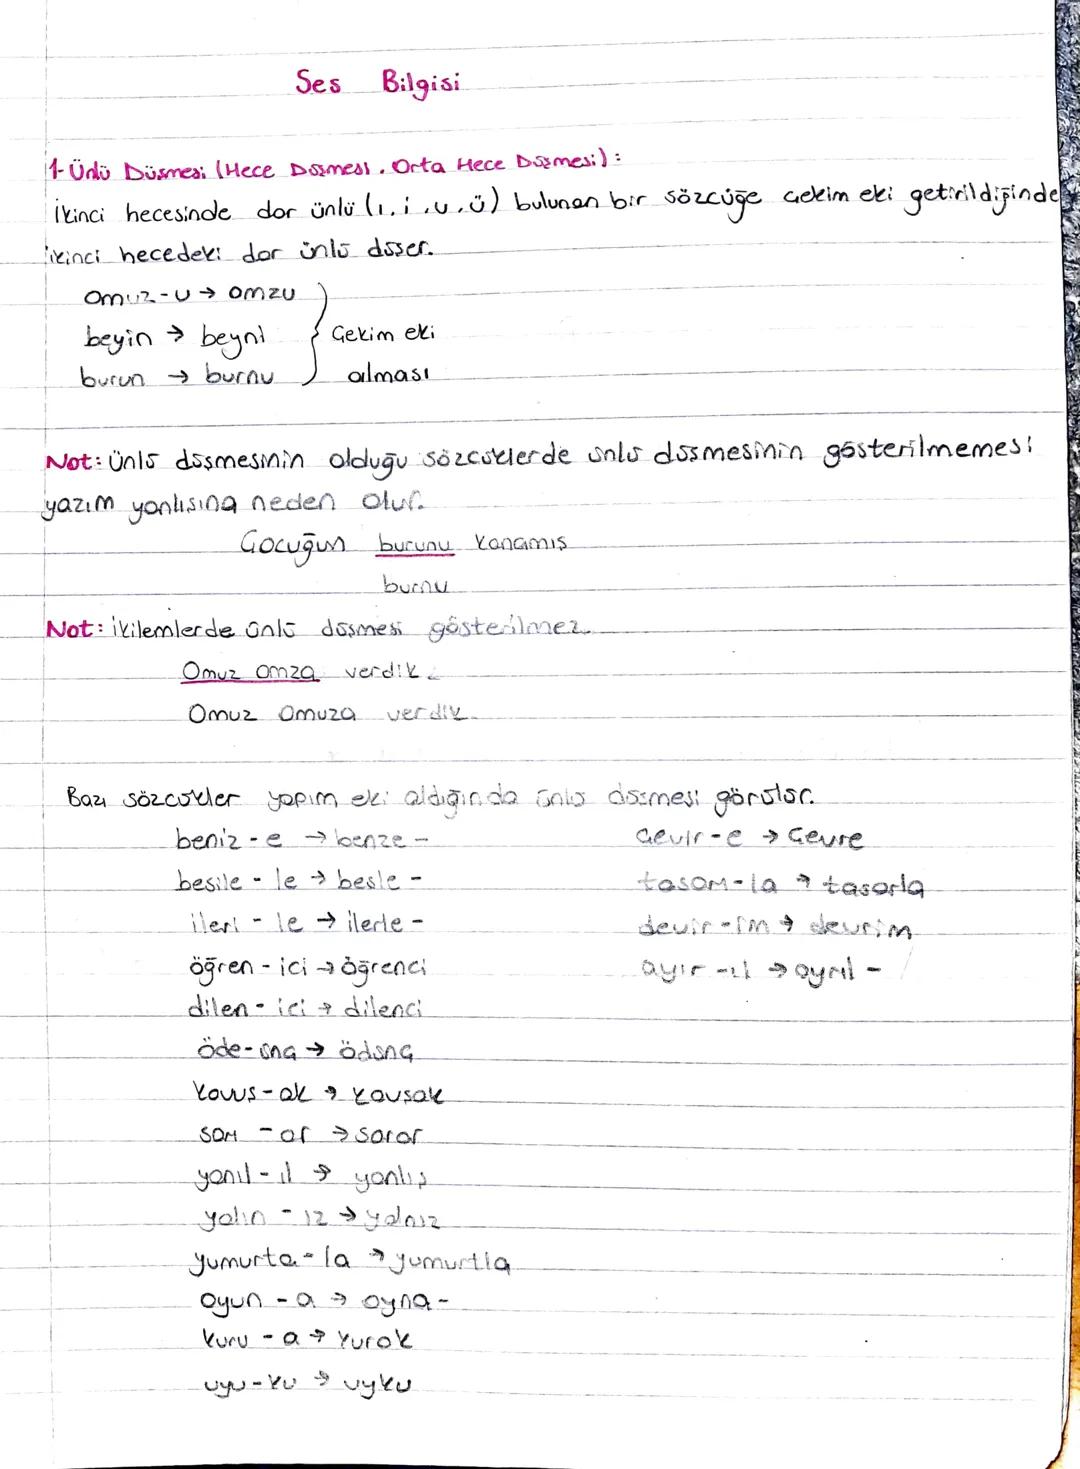 Ses Bilgisi
1-Ünlü Düşmesi (Hece Düşmesi, Orta Hece Düşmesi):
İkinci hecesinde dar ünlü (ı, i, u, ü) bulunan bir sözcüğe çekim eki getirildiğinde
ikinci hecedeki dar ünlü düşer.
Omuz-u → omzu
beyin → beyni } Çekim eki
burun → burnu alması
Not: Ünlü düşmesinin olduğu sözcüklerde ünlü düşmesinin gösterilmemesi
yazım yanlışına neden olur.
Çocuğun burunu kanamış
burnu
Not: İkilemlerde ünlü düşmesi gösterilmez.
Omuz omza verdik.
Omuz omuza verdik.
Bazı sözcükler yapım eki aldığında ünlü düşmesi görülür.
beniz - e → benze - çevir - e → Çevre
besile - le → besle - tasarı-la → tasarla
ileri - le → ilerle - devir - im → devrim
öğren - ici → öğrenci ayır - ıl → ayrıl -
dilen - ici → dilenci
öde-ünç → ödünç
kavuş-ak → kavşak
sarı - ar → sarar
yanıl - ıl → yanlış
yalın - ız → yalnız
yumurta - la → yumurtla
oyun - a → oyna -
kuru - a → kurak
uyu-ku → uyku